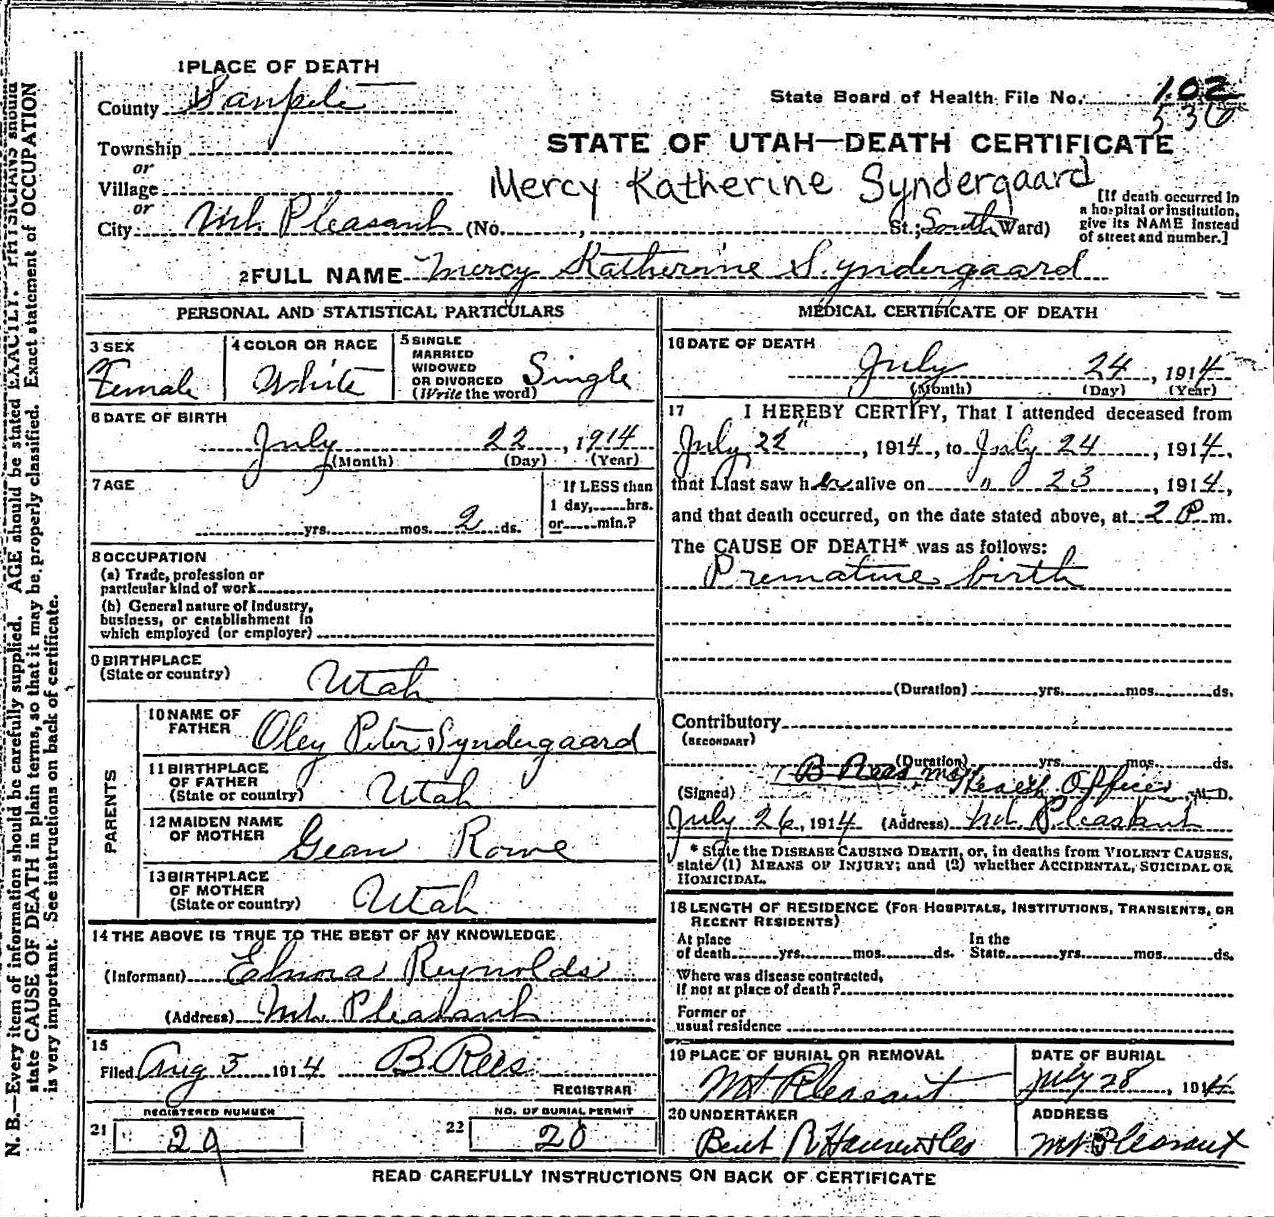 1 PLACE OF DEATH
County Sanpete
State Board of Health File No. 102
536
STATE OF UTAH—DEATH CERTIFICATE
Township
or
Village
or
City Mt. Pleasant (No. , St.; South Ward)
Mercy Katherine Syndergaard
[If death occurred in a hospital or institution, give its NAME instead of street and number.]
2 FULL NAME Mercy Katherine Syndergaard
PERSONAL AND STATISTICAL PARTICULARS
3 SEX
Female
4 COLOR OR RACE
White
5 SINGLE
MARRIED
WIDOWED
OR DIVORCED
(Write the word)
Single
6 DATE OF BIRTH
July 22, 1914
(Month) (Day) (Year)
7 AGE
yrs. mos. 2 ds.
If LESS than
1 day, hrs.
or min.?
8 OCCUPATION
(a) Trade, profession or
particular kind of work
(b) General nature of Industry,
business, or establishment in
which employed (or employer)
9 BIRTHPLACE
(State or country)
Utah
PARENTS
10 NAME OF
FATHER
Oley Peter Syndergaard
11 BIRTHPLACE
OF FATHER
(State or country)
Utah
12 MAIDEN NAME
OF MOTHER
Gean Rowe
13 BIRTHPLACE
OF MOTHER
(State or country)
Utah
14 THE ABOVE IS TRUE TO THE BEST OF MY KNOWLEDGE
(Informant) Elnora Reynolds
(Address) Mt. Pleasant
15
Filed Aug 5 1914 B Rees
REGISTRAR
21 REGISTERED NUMBER
29
22 NO. OF BURIAL PERMIT
20
MEDICAL CERTIFICATE OF DEATH
16 DATE OF DEATH
July 24, 1914
(Month) (Day) (Year)
17 I HEREBY CERTIFY, That I attended deceased from
July 22, 1914, to July 24, 1914,
that I last saw her alive on " 23, 1914,
and that death occurred, on the date stated above, at 2 P m.
The CAUSE OF DEATH* was as follows:
Premature birth
(Duration) yrs. mos. ds.
Contributory
(SECONDARY)
(Duration) yrs. mos. ds.
(Signed) B Rees Health Officer, M. D.
July 26, 1914 (Address) Mt. Pleasant
* State the DISEASE CAUSING DEATH, or, in deaths from VIOLENT CAUSES,
state (1) MEANS OF INJURY; and (2) whether ACCIDENTAL, SUICIDAL OR
HOMICIDAL.
18 LENGTH OF RESIDENCE (FOR HOSPITALS, INSTITUTIONS, TRANSIENTS, OR
RECENT RESIDENTS)
At place
of death yrs. mos. ds.
In the
State yrs. mos. ds.
Where was disease contracted,
If not at place of death?
Former or
usual residence
19 PLACE OF BURIAL OR REMOVAL
Mt Pleasant
DATE OF BURIAL
July 28, 1914
20 UNDERTAKER
Bent R
ADDRESS
Mt Pleasant
READ CAREFULLY INSTRUCTIONS ON BACK OF CERTIFICATE
N. B.—Every item of information should be carefully supplied. AGE should be stated EXACTLY. PHYSICIANS should
state CAUSE OF DEATH in plain terms, so that it may be properly classified. Exact statement of OCCUPATION
is very important. See instructions on back of certificate.